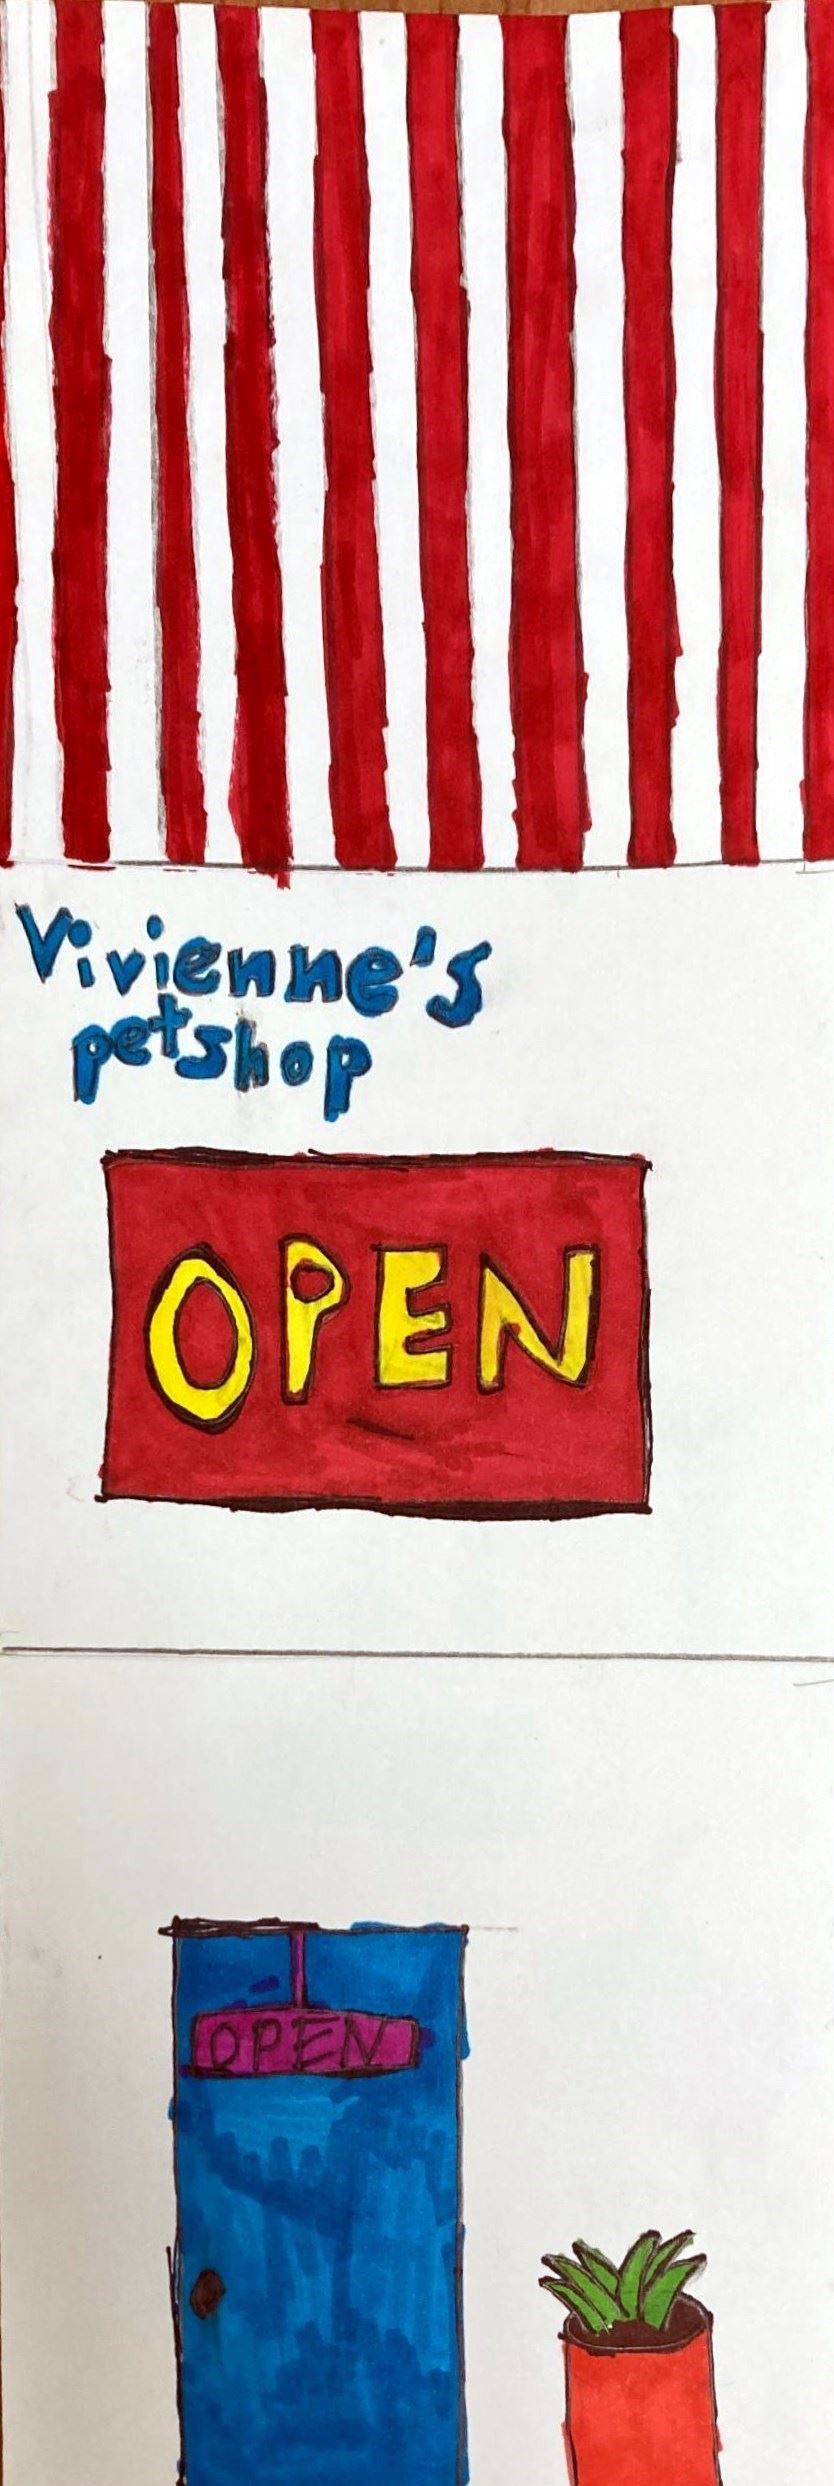 Vivienne's
petshop
OPEN
OPEN